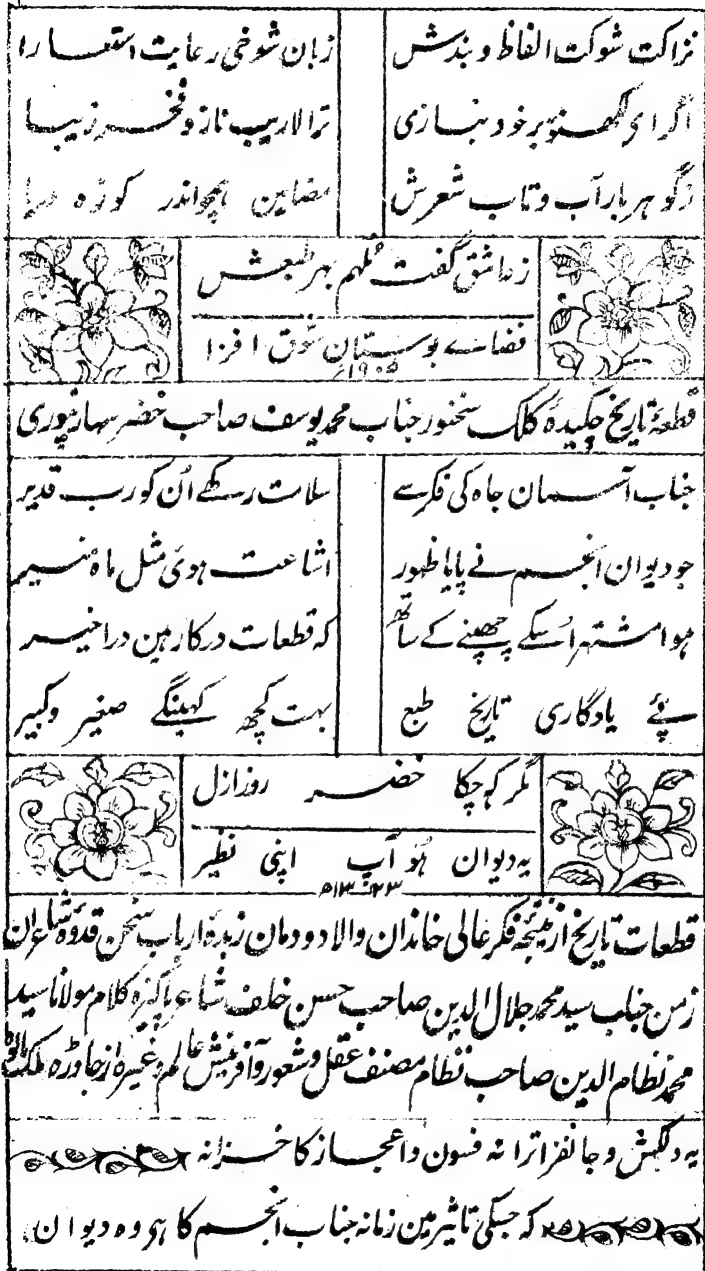 نزاکت شوکت الفاظ و بندش زبان شوخی رعایت استعارا
اگر ای لکھنؤ بر خود بنازی ترا لاریب ناز و فخر زیبا
زگوہر بار آب و تاب شعرش مضامین ہمچو اندر کوزہ
ز عاشق گفت ملہم بہر طبعش
فضائے بوستان شوق افزا
۱۹۰۵ء
قطعۂ تاریخ چکیدۂ کلک سخنور جناب محمد یوسف صاحب خضر سہارنپوری
جناب آسمان جاہ کی فکر سے سلامت رکھے اُن کو رب قدیر
جو دیوان انجم نے پایا ظہور اشاعت ہوئی مثل ماہ منیر
ہوا مشتہر اُسکے چھپنے کے ساتھ کہ قطعات درکار ہین در اخیر
پئے یادگاری تاریخ طبع بہت کچھ کہینگے صغیر و کبیر
مگر کہ چکا خضر روز ازل
یہ دیوان ہُو آپ اپنی نظیر
۱۳۲۳ھ
قطعات تاریخ از نتیجۂ فکر عالی خاندان والا دودمان زبدۂ ارباب سخن قدوۂ شاعران
زمن جناب سید محمد جلال الدین صاحب حسن خلف شاعر پاکیزہ کلام مولانا سید
محمد نظام الدین صاحب نظام مصنف عقل و شعور و آفرینش عالم وغیرہ از جاورہ ملک مالوہ
یہ دلکش و جانفزا ترانہ فسون و اعجاز کا خزانہ
کہ جسکی تاثیر مین زمانہ جناب انجم کا ہی وہ دیوان